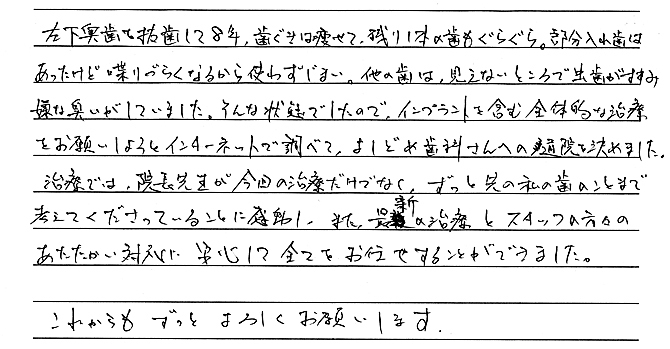 左下奥歯を抜歯して8年、歯ぐきは痩せて、残り1本の歯もぐらぐら。部分入れ歯は
あったけど喋りづらくなるから使わずじまい。他の歯は、見えないところで虫歯がすすみ
嫌な臭いがしていました。そんな状態でしたので、インプラントを含む全体的な治療
をお願いしようとインターネットで調べて、よしどめ歯科さんへの通院を決めました。
治療では、院長先生が今回の治療だけでなく、ずっと先の私の歯のことまで
考えてくださっていることに感動し、また、最新の治療とスタッフの方々の
あたたかい対応に安心して全てをお任せすることができました。
これからもずっとよろしくお願いします。